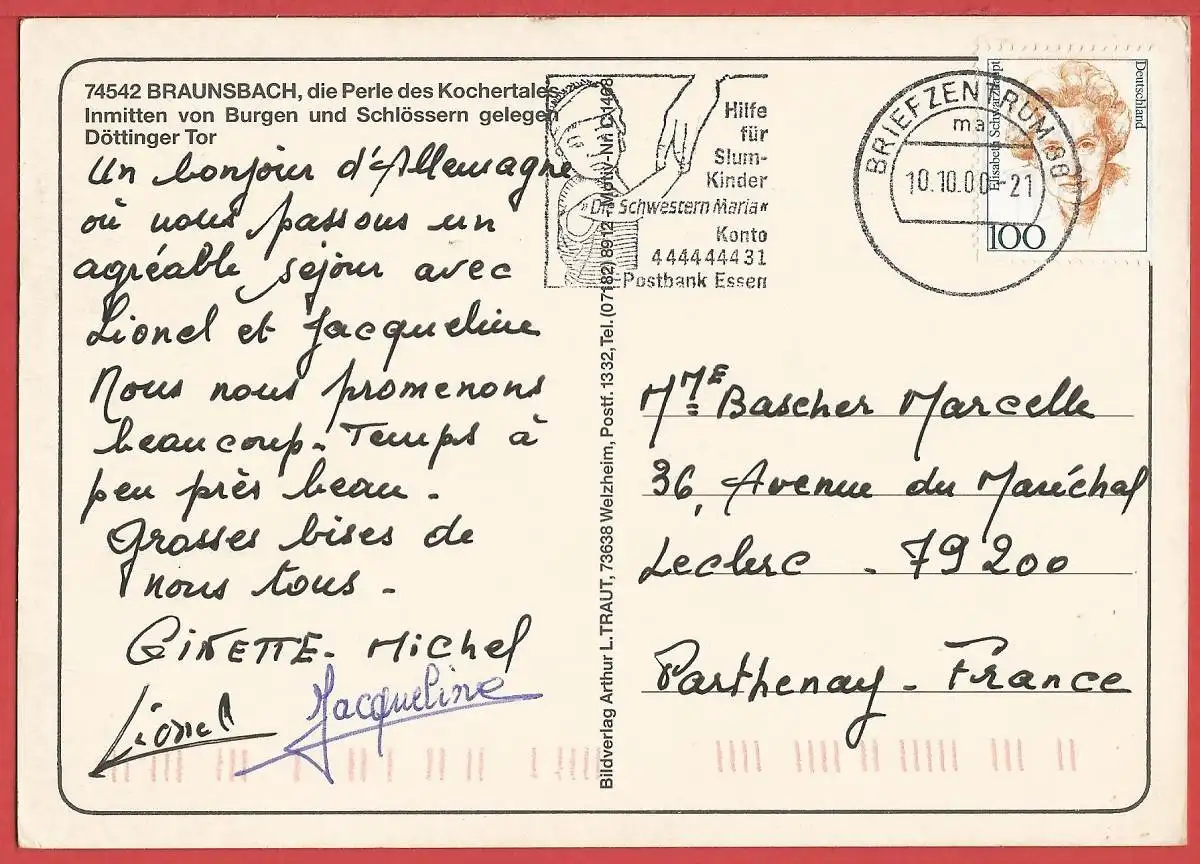 74542 BRAUNSBACH, die Perle des Kochertales
Inmitten von Burgen und Schlössern gelegen
Döttinger Tor
Un bonjour d'Allemagne
où nous passons un
agréable séjour avec
Lionel et Jacqueline
Nous nous promenons
beaucoup. Temps à
peu près beau.
Grosses bises de
nous tous.
GINETTE. Michel
Lionel Jacqueline
Bildverlag Arthur L. TRAUT, 73638 Welzheim, Postf. 1332, Tel. (07182) 8912 - Motiv-Nr.
Hilfe
für
Slum-
Kinder
»Die Schwestern Maria«
Konto
444444431
Postbank Essen
BRIEFZENTRUM
ma
10.10.00-21
Elisabeth Schwarzhaupt
Deutschland
100
MME Bascher Marcelle
36, Avenue du Maréchal
Leclerc - 79200
Parthenay - France